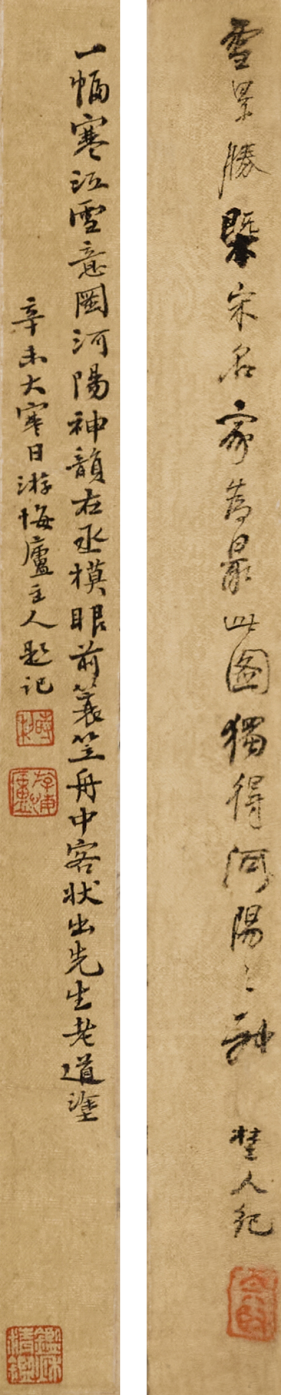 雪景勝槩宋名家為最此图獨得河陽之神
楚人記
一幅寒江雪意圖河陽神韻右丞摸眼前蓑笠舟中客狀出先生老道塗
辛未大寒日游悔廬主人題記